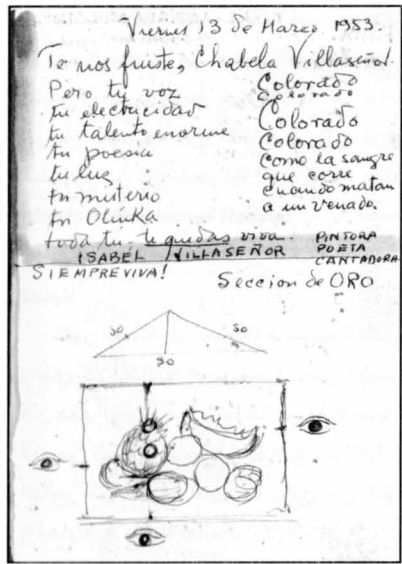 Viernes 13 de Marzo. 1953.
Te nos fuiste, Chabela Villaseñor.
Pero tu voz
tu electricidad
tu talento enorme
tu poesía
tu luz
tu misterio
tu Olinka
toda tu, te quedas viva.
Colorado
Colorado
Colorado
Colorado
Como la sangre
que corre
cuando matan
a un venado.
ISABEL VILLASEÑOR
PINTORA
POETA
CANTADORA
SIEMPREVIVA!
Seccion de ORO
50
50